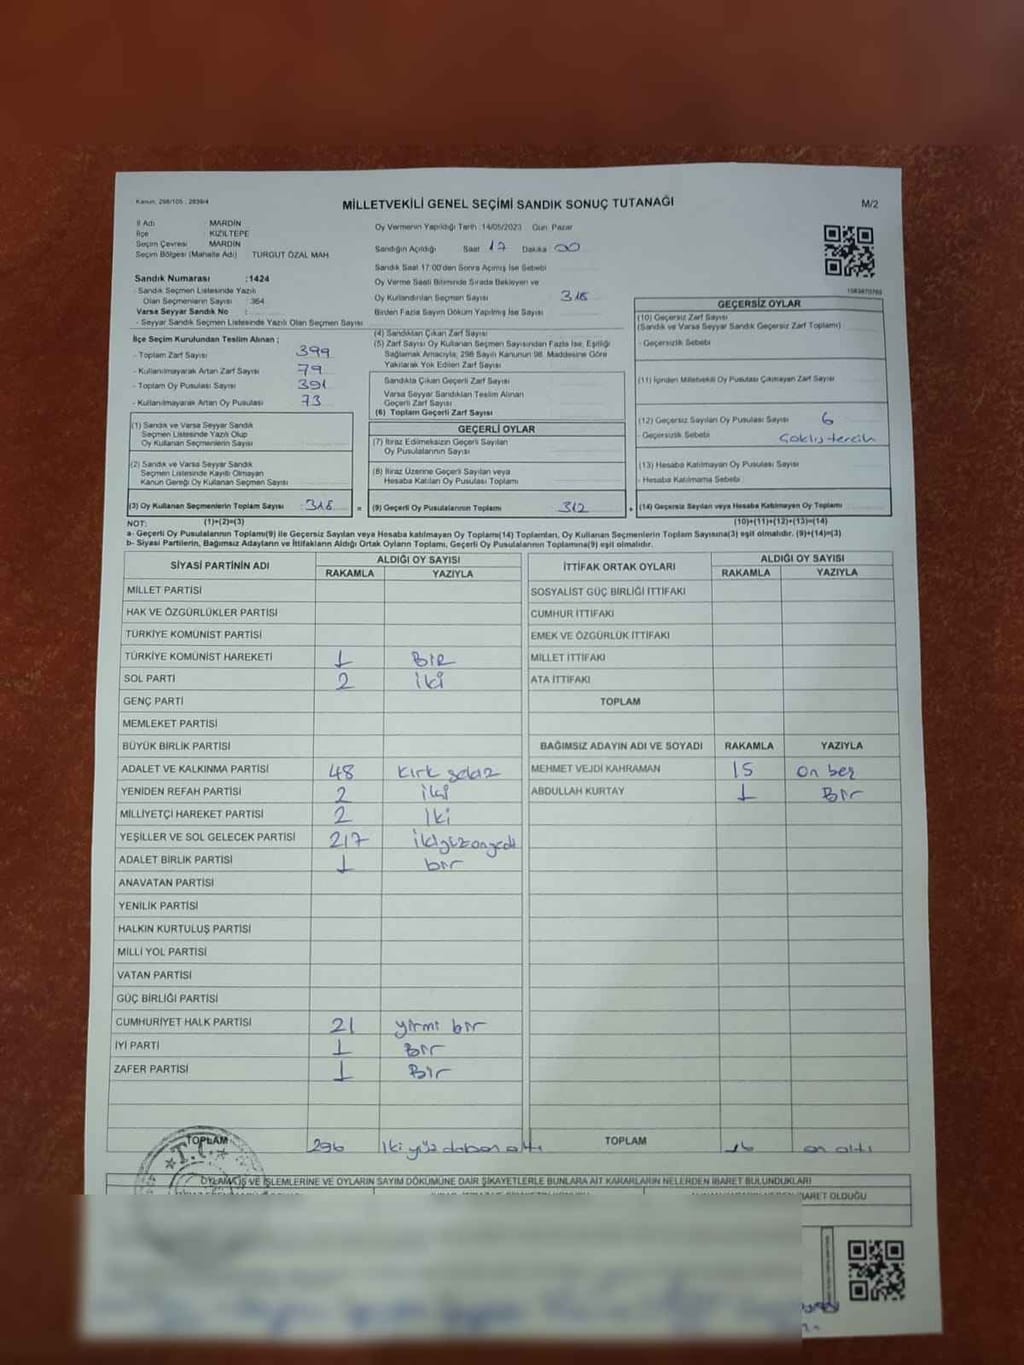 Kanun, 298/105 , 2839/4
MİLLETVEKİLİ GENEL SEÇİMİ SANDIK SONUÇ TUTANAĞI
M/2
İl Adı : MARDİN
İlçe : KIZILTEPE
Seçim Çevresi : MARDİN
Seçim Bölgesi (Mahalle Adı) : TURGUT ÖZAL MAH.
Sandık Numarası :1424
- Sandık Seçmen Listesinde Yazılı
Olan Seçmenlerin Sayısı : 364
Varsa Seyyar Sandık No :
- Seyyar Sandık Seçmen Listesinde Yazılı Olan Seçmen Sayısı
İlçe Seçim Kurulundan Teslim Alınan ;
- Toplam Zarf Sayısı 399
- Kullanılmayarak Artan Zarf Sayısı 79
- Toplam Oy Pusulası Sayısı 391
- Kullanılmayarak Artan Oy Pusulası 73
(1) Sandık ve Varsa Seyyar Sandık
Seçmen Listesinde Yazılı Olup
Oy Kullanan Seçmenlerin Sayısı
(2) Sandık ve Varsa Seyyar Sandık
Seçmen Listesinde Kayıtlı Olmayan
Kanun Gereği Oy Kullanan Seçmen Sayısı
(3) Oy Kullanan Seçmenlerin Toplam Sayısı 318 =
Oy Vermenin Yapıldığı Tarih :14/05/2023 Gün: Pazar
Sandığın Açıldığı Saat 17 Dakika 00
Sandık Saat 17:00'den Sonra Açılmış İse Sebebi
Oy Verme Saati Bitiminde Sırada Bekleyen ve
Oy Kullandırılan Seçmen Sayısı 318
Birden Fazla Sayım Döküm Yapılmış İse Sayısı
(4) Sandıktan Çıkan Zarf Sayısı
(5) Zarf Sayısı Oy Kullanan Seçmen Sayısından Fazla İse, Eşitliği
Sağlamak Amacıyla, 298 Sayılı Kanunun 98. Maddesine Göre
Yakılarak Yok Edilen Zarf Sayısı
Sandıkta Çıkan Geçerli Zarf Sayısı
Varsa Seyyar Sandıktan Teslim Alınan
Geçerli Zarf Sayısı
(6) Toplam Geçerli Zarf Sayısı
GEÇERLİ OYLAR
(7) İtiraz Edilmeksizin Geçerli Sayılan
Oy Pusulalarının Sayısı
(8) İtiraz Üzerine Geçerli Sayılan veya
Hesaba Katılan Oy Pusulası Toplamı
(9) Geçerli Oy Pusulalarının Toplamı 312 +
1583870765
GEÇERSİZ OYLAR
(10) Geçersiz Zarf Sayısı
(Sandık ve Varsa Seyyar Sandık Geçersiz Zarf Toplamı)
- Geçersizlik Sebebi
(11) İçinden Milletvekili Oy Pusulası Çıkmayan Zarf Sayısı
(12) Geçersiz Sayılan Oy Pusulası Sayısı 6
- Geçersizlik Sebebi tercih
(13) Hesaba Katılmayan Oy Pusulası Sayısı
- Hesaba Katılmama Sebebi
(14) Geçersiz Sayılan veya Hesaba Katılmayan Oy Toplamı
NOT: (1)+(2)=(3) (10)+(11)+(12)+(13)=(14)
a- Geçerli Oy Pusulalarının Toplamı(9) ile Geçersiz Sayılan veya Hesaba katılmayan Oy Toplamı(14) Toplamları, Oy Kullanan Seçmenlerin Toplam Sayısına(3) eşit olmalıdır. (9)+(14)=(3)
b- Siyasi Partilerin, Bağımsız Adayların ve İttifakların Aldığı Ortak Oyların Toplamı, Geçerli Oy Pusulalarının Toplamına(9) eşit olmalıdır.
SİYASİ PARTİNİN ADI ALDIĞI OY SAYISI
RAKAMLA YAZIYLA
MİLLET PARTİSİ
HAK VE ÖZGÜRLÜKLER PARTİSİ
TÜRKİYE KOMÜNİST PARTİSİ
TÜRKİYE KOMÜNİST HAREKETİ 1 BİR
SOL PARTİ 2 iki
GENÇ PARTİ
MEMLEKET PARTİSİ
BÜYÜK BİRLİK PARTİSİ
ADALET VE KALKINMA PARTİSİ 48 kırk sekiz
YENİDEN REFAH PARTİSİ 2 iki
MİLLİYETÇİ HAREKET PARTİSİ 2 iki
YEŞİLLER VE SOL GELECEK PARTİSİ 217 ikiyüzonyedi
ADALET BİRLİK PARTİSİ 1 bir
ANAVATAN PARTİSİ
YENİLİK PARTİSİ
HALKIN KURTULUŞ PARTİSİ
MİLLİ YOL PARTİSİ
VATAN PARTİSİ
GÜÇ BİRLİĞİ PARTİSİ
CUMHURİYET HALK PARTİSİ 21 yirmi bir
İYİ PARTİ 1 Bir
ZAFER PARTİSİ 1 Bir
TOPLAM 296 iki yüz doksan altı
İTTİFAK ORTAK OYLARI ALDIĞI OY SAYISI
RAKAMLA YAZIYLA
SOSYALİST GÜÇ BİRLİĞİ İTTİFAKI
CUMHUR İTTİFAKI
EMEK VE ÖZGÜRLÜK İTTİFAKI
MİLLET İTTİFAKI
ATA İTTİFAKI
TOPLAM
BAĞIMSIZ ADAYIN ADI VE SOYADI RAKAMLA YAZIYLA
MEHMET VEJDİ KAHRAMAN 15 on beş
ABDULLAH KURTAY 1 Bir
TOPLAM 16 on altı
T.C.
OYLAMA İŞ VE İŞLEMLERİNE VE OYLARIN SAYIM DÖKÜMÜNE DAİR ŞİKAYETLERLE BUNLARA AİT KARARLARIN NELERDEN İBARET BULUNDUKLARI
İBARET OLDUĞU